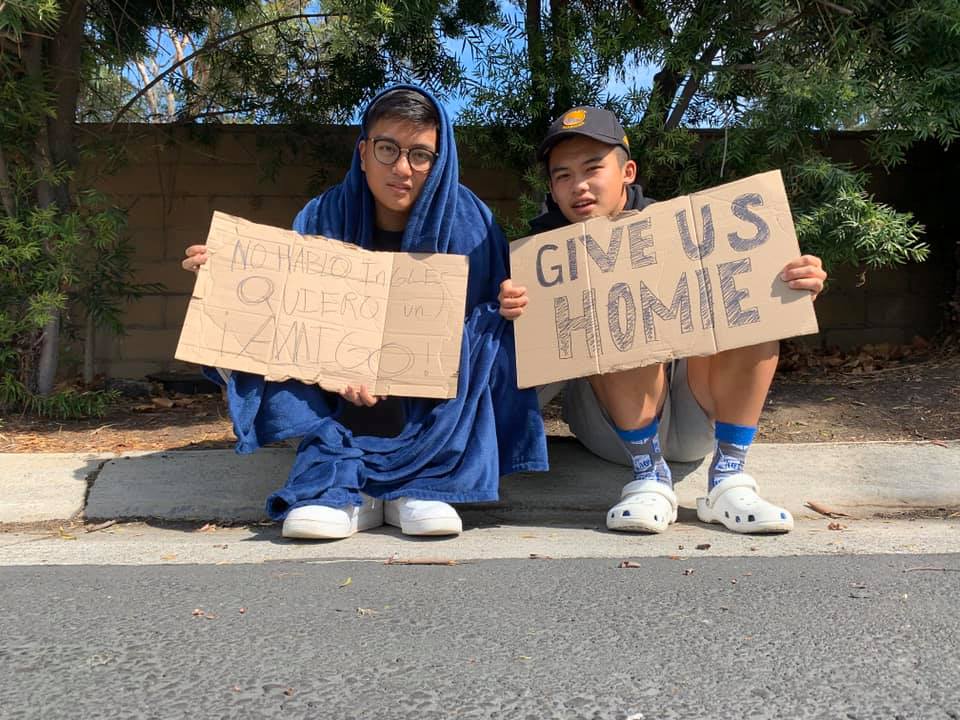 NO HABLO INGLES
QUIERO un
¡AMIGO!
GIVE US
HOMIE